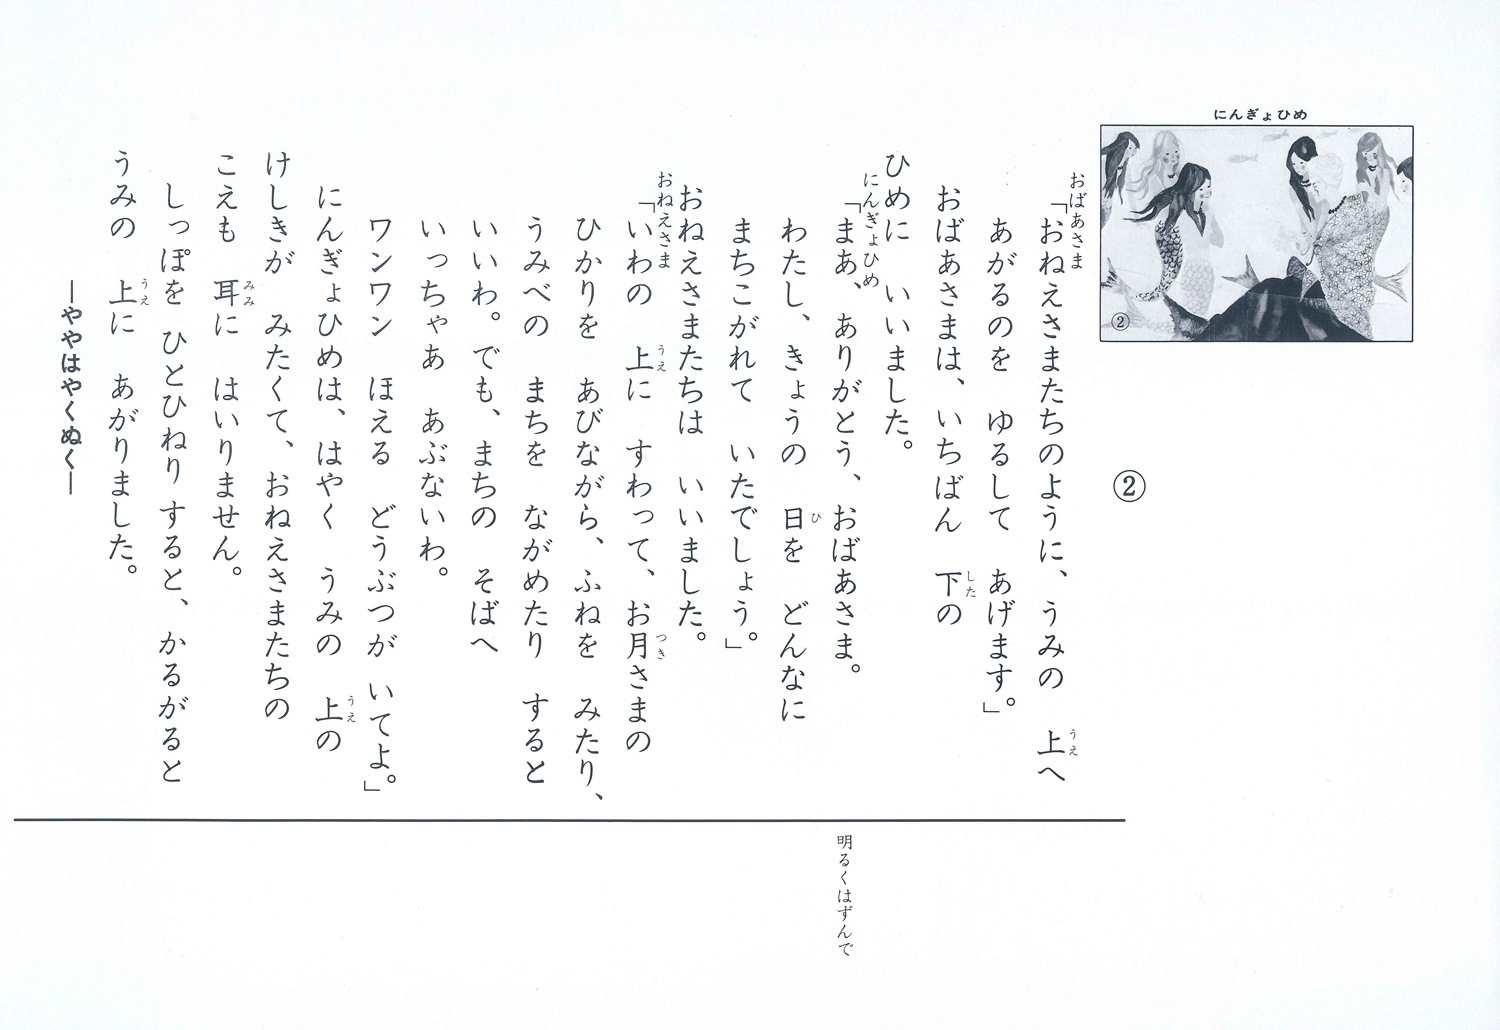 にんぎょひめ
②
②
おばあさま
「おねえさまたちのように、うみの　上へ
うえ
あがるのを　ゆるして　あげます。」
おばあさまは、いちばん　下の
した
ひめに　いいました。
にんぎょひめ
「まあ、ありがとう、おばあさま。
わたし、きょうの　日を　どんなに
ひ
まちこがれて　いたでしょう。」
おねえさまたちは　いいました。
おねえさま
「いわの　上に　すわって、お月さまの
うえ
つき
ひかりを　あびながら、ふねを　みたり、
うみべの　まちを　ながめたり　すると
いいわ。でも、まちの　そばへ
いっちゃあ　あぶないわ。
ワンワン　ほえる　どうぶつが　いてよ。」
にんぎょひめは、はやく　うみの　上の
うえ
けしきが　みたくて、おねえさまたちの
こえも　耳に　はいりません。
みみ
しっぽを　ひとひねり　すると、かるがると
うみの　上に　あがりました。
うえ
―ややはやくぬく―
明るくはずんで